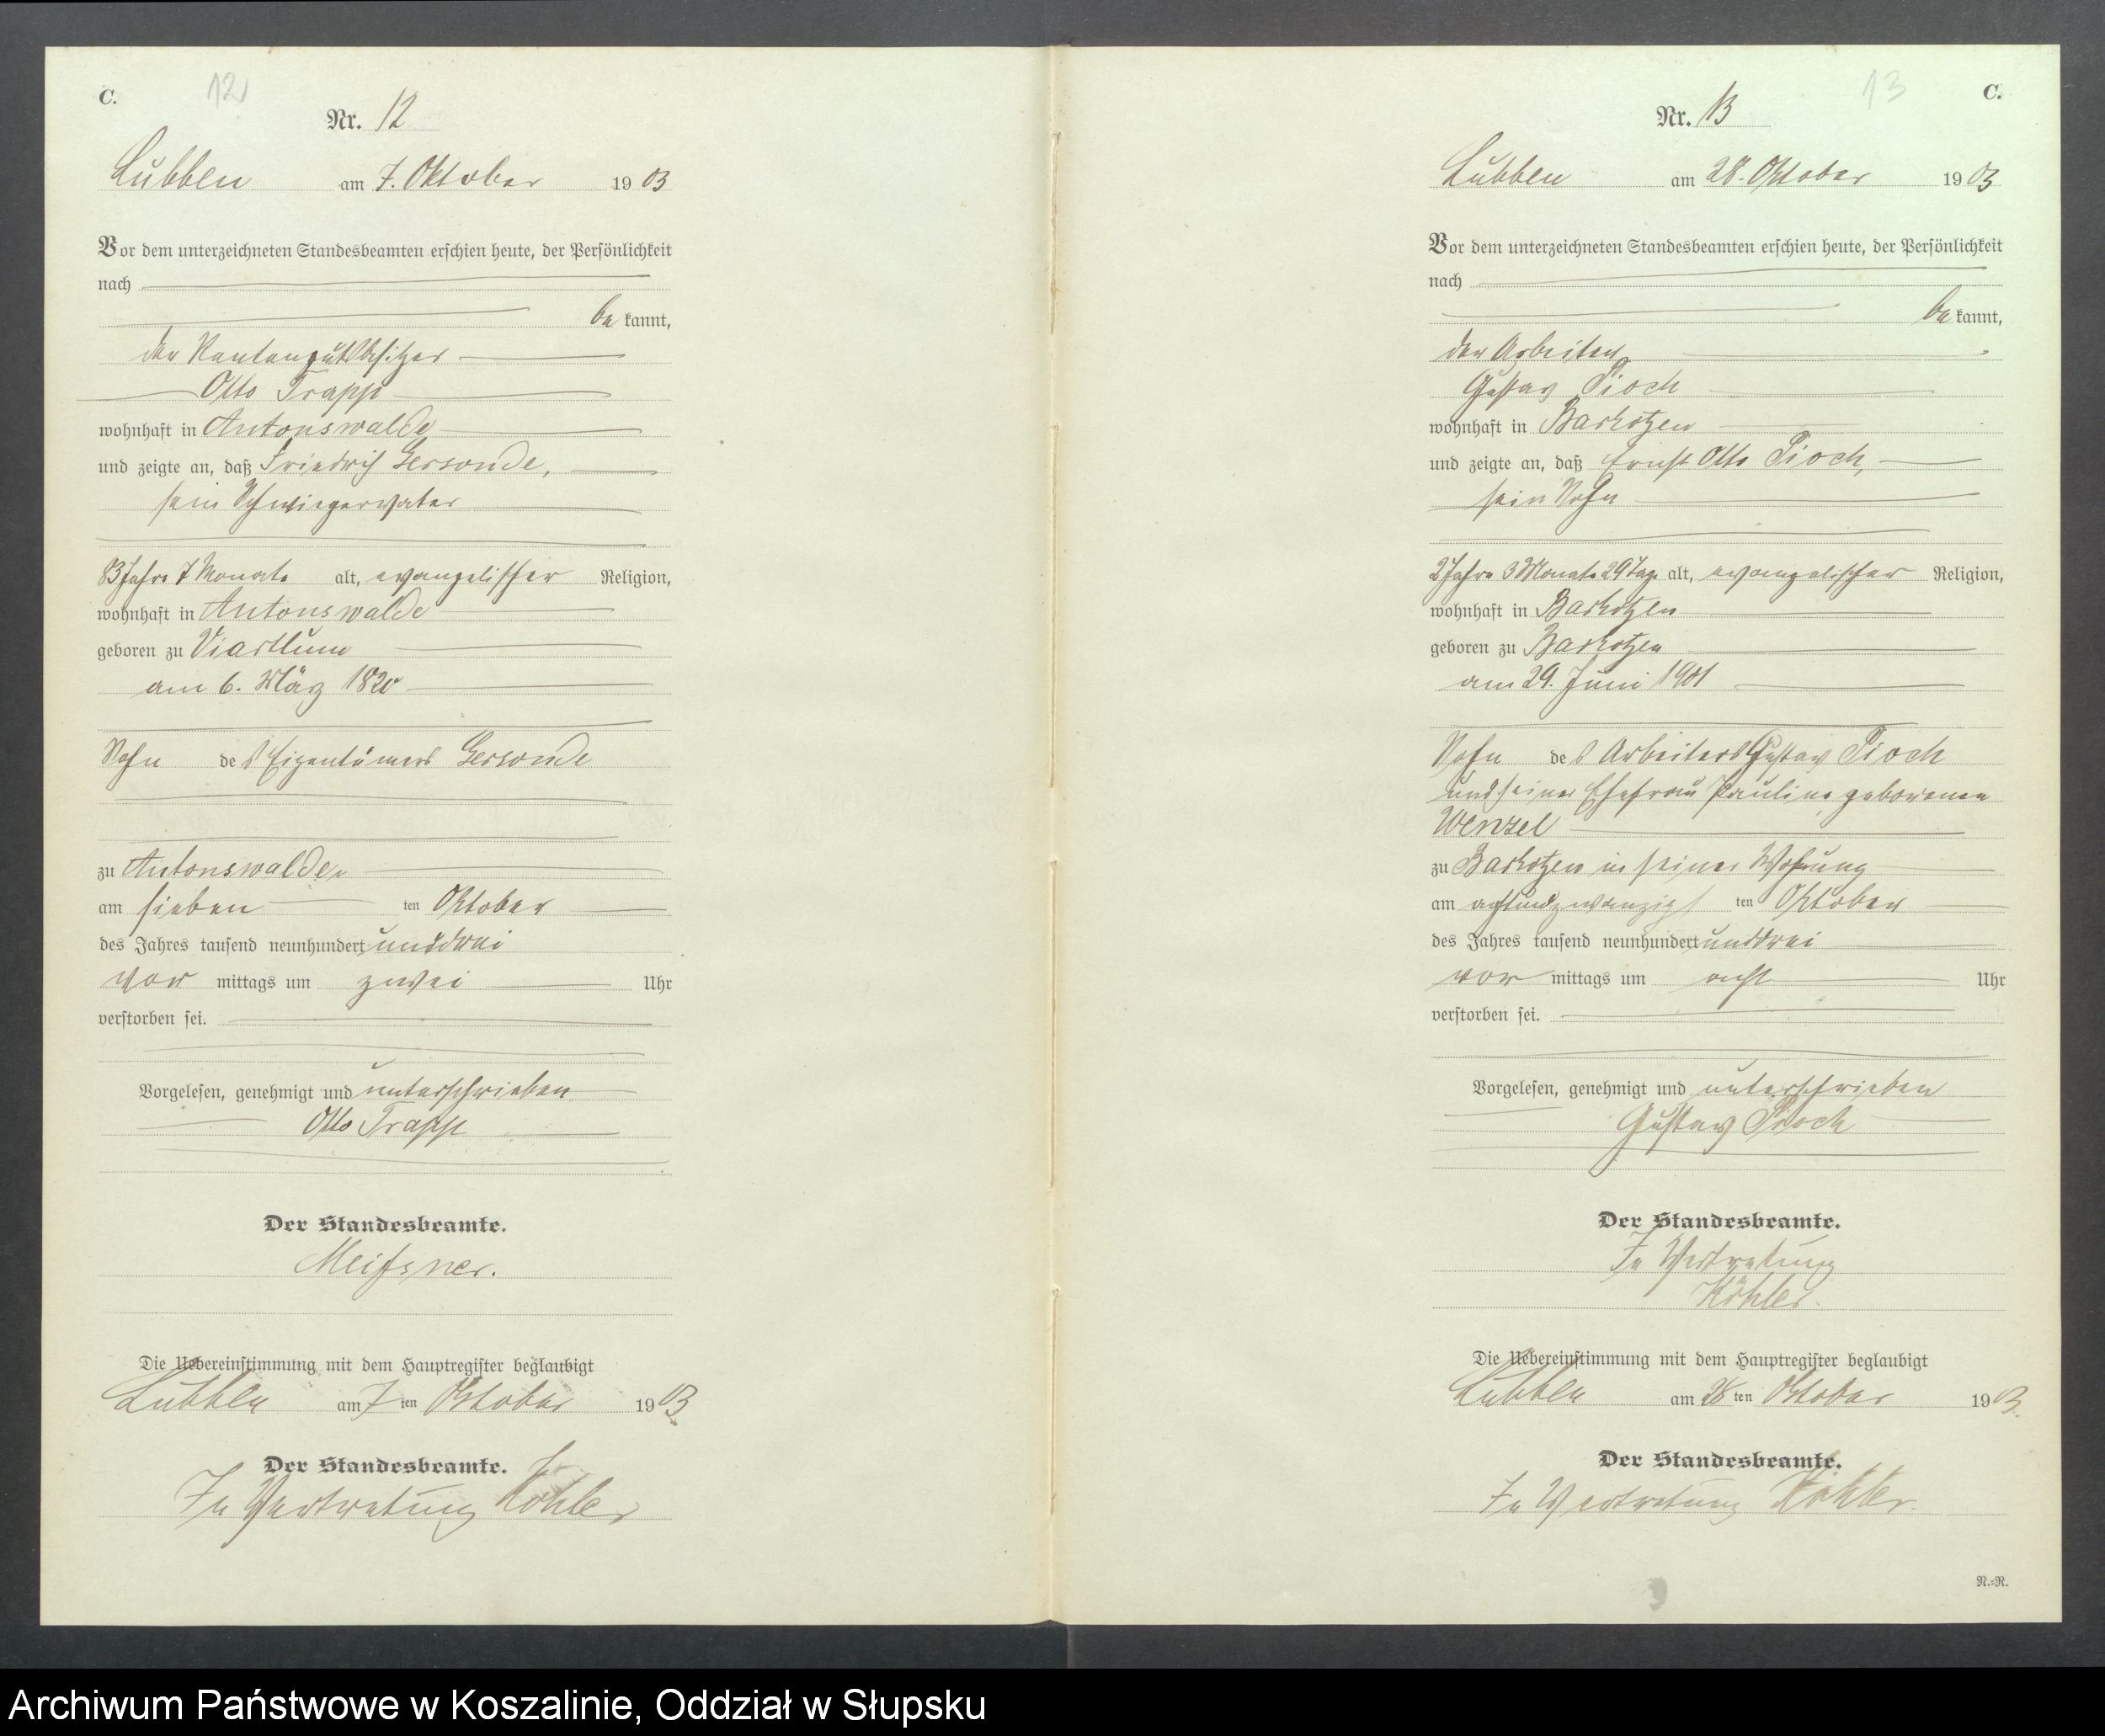 C.
12
Nr. 12
Lubben am 7. Oktober 1903
Vor dem unterzeichneten Standesbeamten erschien heute, der Persönlichkeit
nach
be kannt,
der Rentengutsbesitzer
Otto Trapp
wohnhaft in Antonswalde
und zeigte an, daß Friedrich Gersonde,
sein Schwiegervater
83 Jahre 7 Monate alt, evangelischer Religion,
wohnhaft in Antonswalde
geboren zu Viartlum
am 6. März 1820
Sohn des Eigentümers Gersonde
zu Antonswalde
am sieben ten Oktober
des Jahres tausend neunhundert unddrei
vor mittags um zwei Uhr
verstorben sei.
Vorgelesen, genehmigt und unterschrieben
Otto Trapp
Der Standesbeamte.
Meissner.
Die Uebereinstimmung mit dem Hauptregister beglaubigt
Lubben am 7 ten Oktober 1903
Der Standesbeamte.
In Vertretung Köhler
13
C.
Nr. 13
Lubben am 28. Oktober 1903
Vor dem unterzeichneten Standesbeamten erschien heute, der Persönlichkeit
nach
be kannt,
der Arbeiter
Gustav Pioch
wohnhaft in Barkotzen
und zeigte an, daß Ernst Otto Pioch,
sein Sohn
2 Jahre 3 Monate 29 Tage alt, evangelischer Religion,
wohnhaft in Barkotzen
geboren zu Barkotzen
am 29. Juni 1901
Sohn des Arbeiters Gustav Pioch
und seiner Ehefrau Pauline, geborenen
Wenzel
zu Barkotzen in seiner Wohnung
am achtundzwanzigs ten Oktober
des Jahres tausend neunhundert unddrei
vor mittags um acht Uhr
verstorben sei.
Vorgelesen, genehmigt und unterschrieben
Gustav Pioch
Der Standesbeamte.
In Vertretung
Köhler.
Die Uebereinstimmung mit dem Hauptregister beglaubigt
Lubben am 28 ten Oktober 1903.
Der Standesbeamte.
In Vertretung Köhler.
N.=N.
Archiwum Państwowe w Koszalinie, Oddział w Słupsku